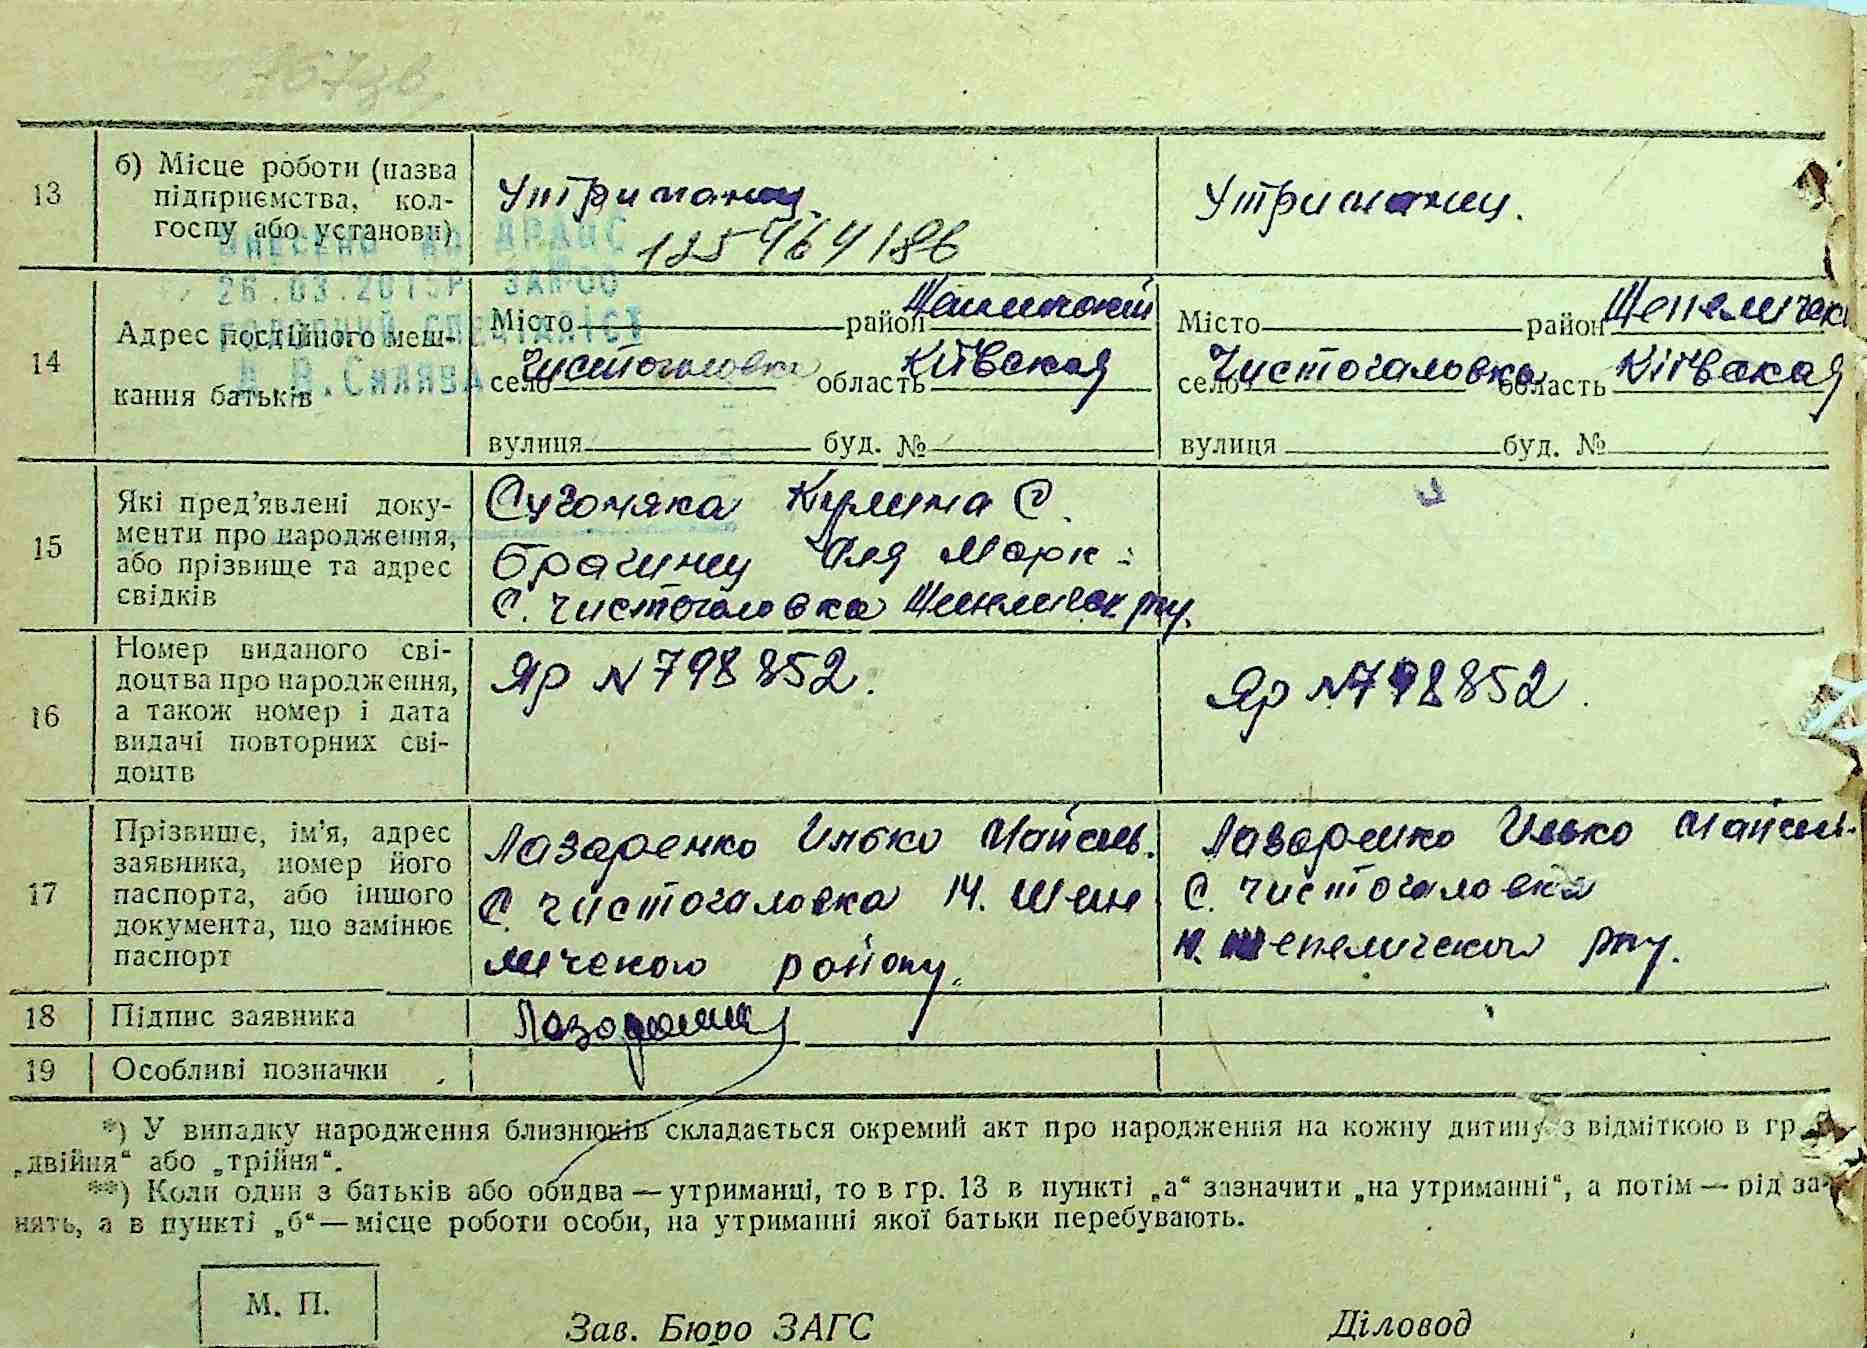 13
б) Місце роботи (назва
підприємства, кол-
госпу або установи)
Утриманец.
125464186
Утриманец.
ВНЕСЕНО ДО ДРАЦС
26.03.2015Р
14
Адрес постійного меш-
кання батьків
Місто район
село Чистогаловка область Київская
вулиця буд. №
Місто район Шепеличск
село Чистогаловка область Київская
вулиця буд. №
15
Які пред'явлені доку-
менти про народження,
або прізвище та адрес
свідків
Сугоняка Кулина С.
Брагинец Марк:
С. Чистогаловка
16
Номер виданого сві-
доцтва про народження,
а також номер і дата
видачі повторних сві-
доцтв
Яр N 798852.
Яр N 798852.
17
Прізвище, ім'я, адрес
заявника, номер його
паспорта, або іншого
документа, що замінює
паспорт
Лазаренко Илько
С. Чистогаловка Н. Шепе
личского району.
Лазаренко Илько
С. Чистогаловка
Н. Шепеличского рну.
18
Підпис заявника
19
Особливі позначки
*) У випадку народження близнюків складається окремий акт про народження на кожну дитину з відміткою в гр.
„двійня“ або „трійня“.
**) Коли один з батьків або обидва — утриманці, то в гр. 13 в пункті „а“ зазначити „на утриманні“, а потім — рід за-
нять, а в пункті „б“ — місце роботи особи, на утриманні якої батьки перебувають.
М. П.
Зав. Бюро ЗАГС
Діловод